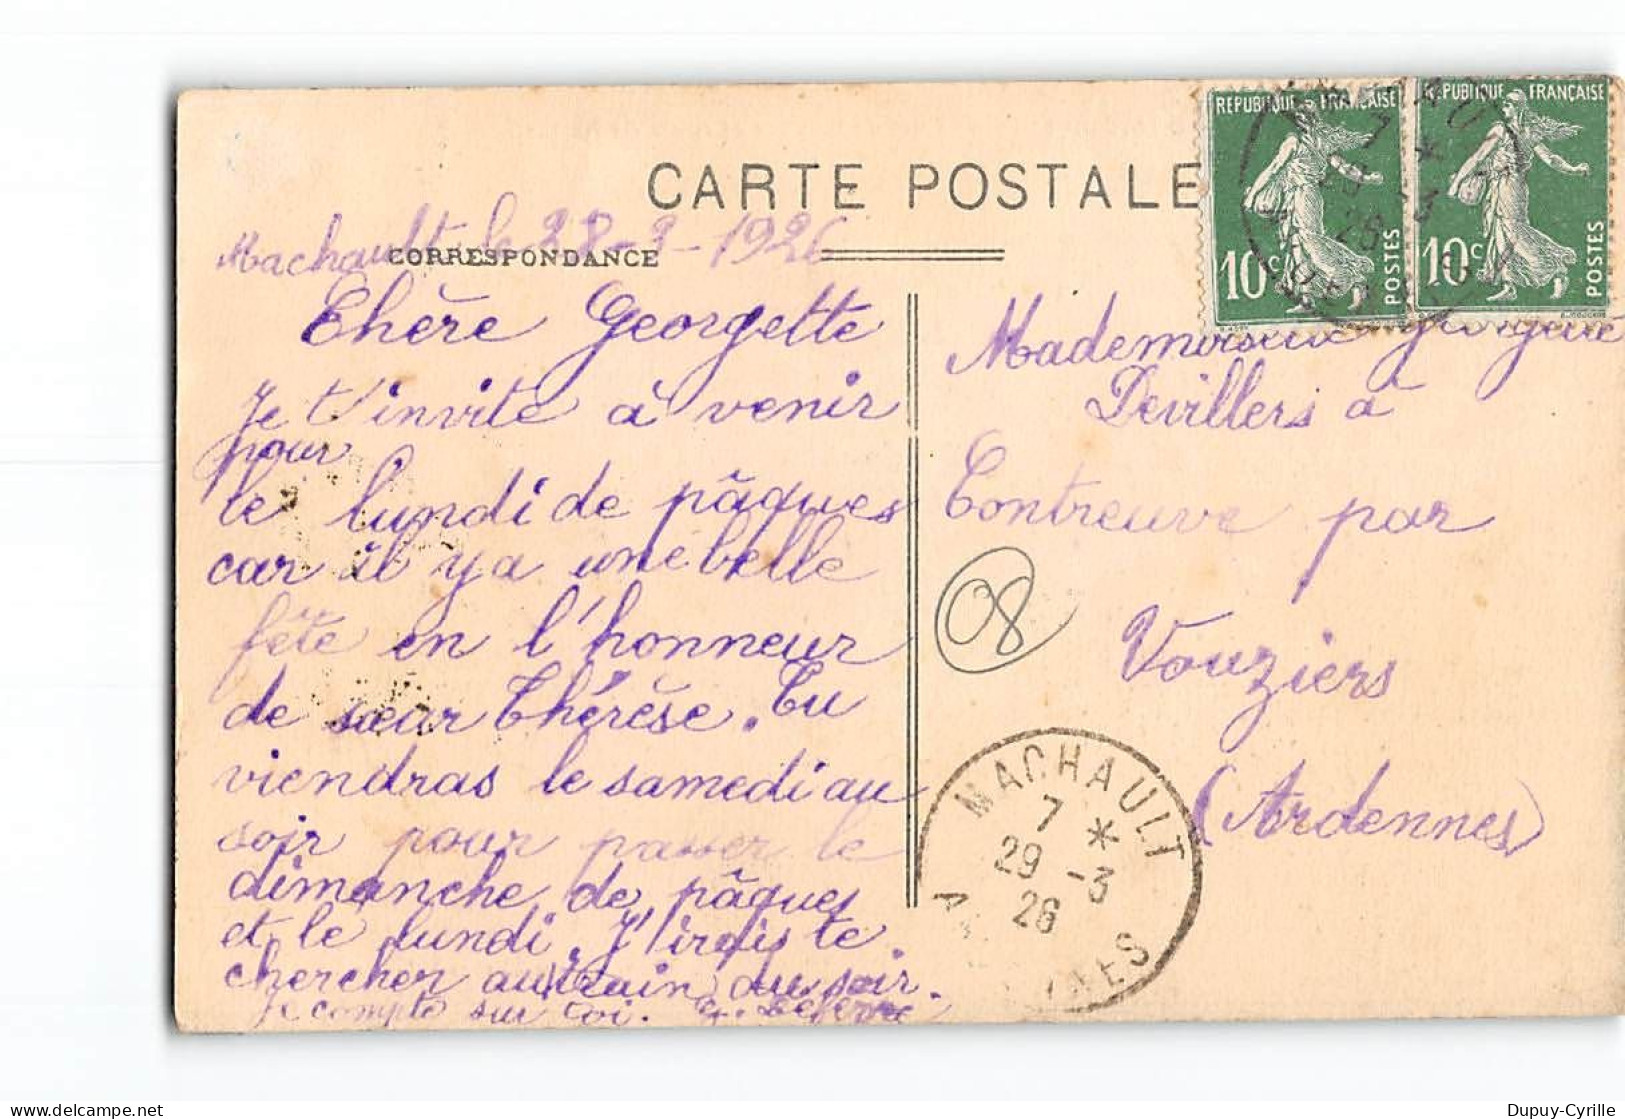 CARTE POSTALE
Machault le 28-3-1926
CORRESPONDANCE
Chère Georgette
Je t'invite à venir
pour
le lundi de pâques
car il y a une belle
fête en l'honneur
de sœur Thérèse. Tu
viendras le samedi au
soir pour passer le
dimanche de pâques
et le lundi. J'irais te
chercher au train au soir.
Je compte sur toi. G. Lefevre
REPUBLIQUE FRANÇAISE
10c
POSTES
REPUBLIQUE FRANÇAISE
10c
POSTES
Mademoiselle Georgette
Devillers à
Contreuve par
08
Vouziers
(Ardennes)
MACHAULT
7 *
29 -3
26
Dupuy-Cyrille